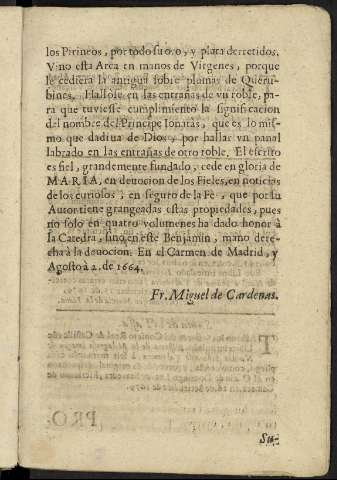 los Pirineos, por todo su oro, y plata derretidos.
Vino esta Arca en manos de Virgenes, porque
le cediera la antigua sobre plumas de Queru-
bines. Hallòse en las entrañas de vn roble, pa-
ra que tuviesse cumplimiento la significacion
del nombre del Principe Ionatàs, que es lo mis-
mo que dadiua de Dios y por hallar vn panal
labrado en las entrañas de otro roble. El escrito
es fiel, grandemente fundado, cede en gloria de
MARIA, en deuocion de los Fieles, en noticias
de los curiosos, en seguro de la Fè, que por su
Autor tiene grangeadas estas propiedades, pues
no solo en quatro volumenes ha dado honor à
la Catedra, sino en este Benjamin, mano dere-
cha à la deuocion. En el Carmen de Madrid, y
Agosto à 2. de 1664.
Fr. Miguel de Cardenas.
Su-